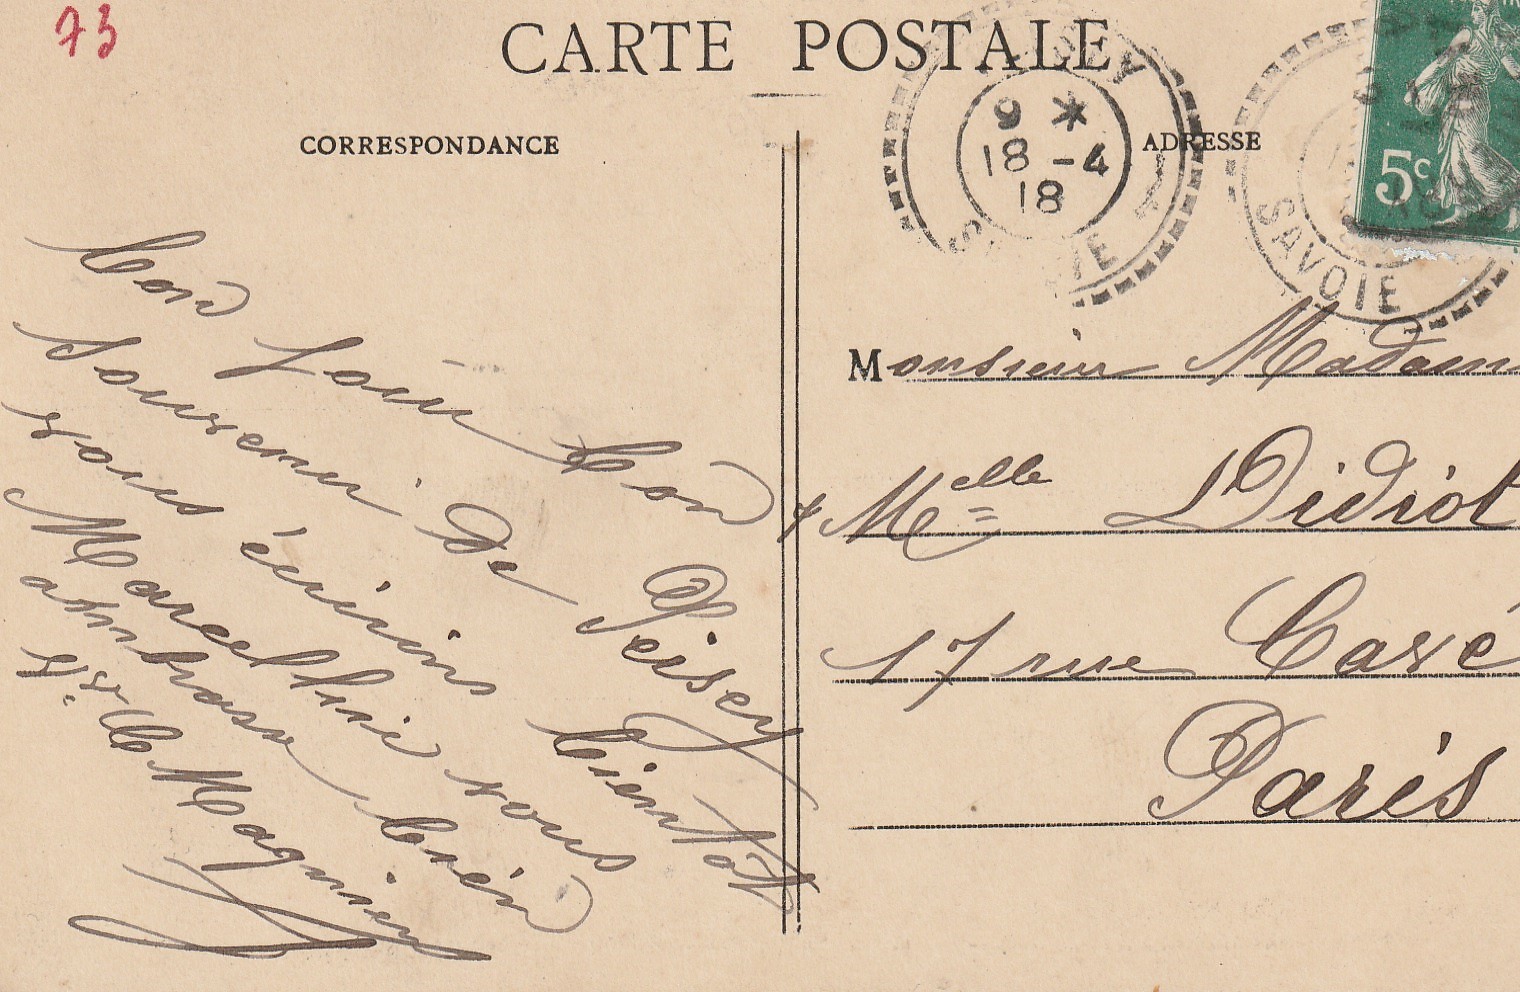 73
CARTE POSTALE
CORRESPONDANCE
ADRESSE
9 *
18 -4
18
SAVOIE
5c
SAVOIE
Bon Souvenir De Peisey
vous écrirons bientôt
Marcel vous
embrasse bien
Magnien
Monsieur Madam
Melle Didiot
17 rue Cavé
Paris